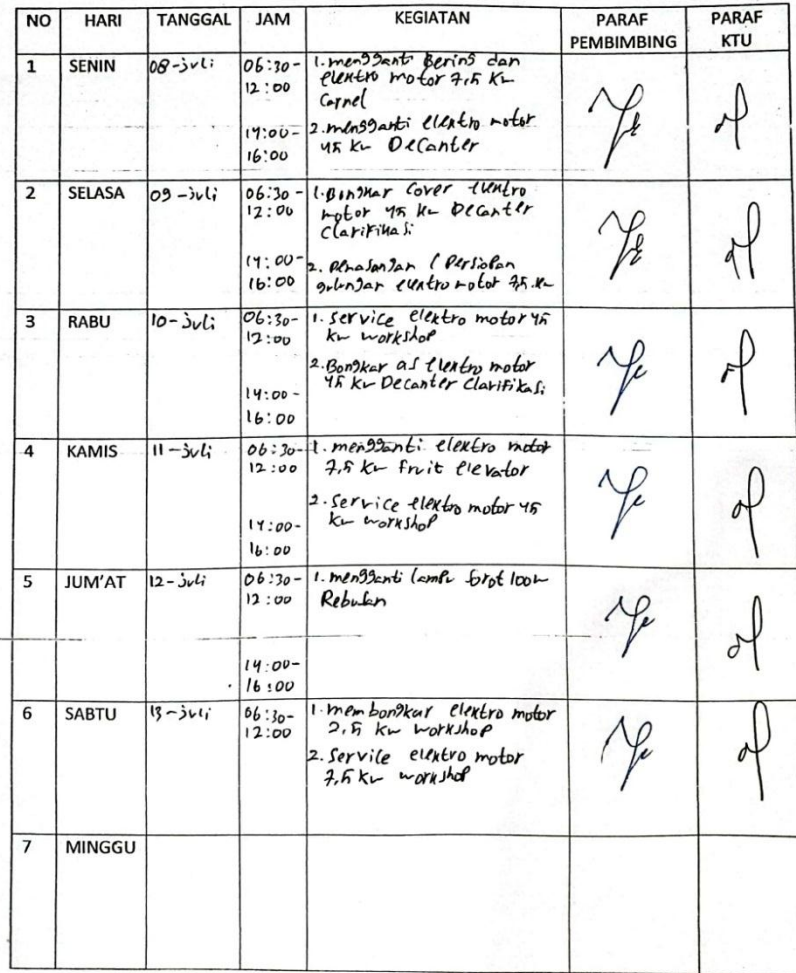 NO HARI TANGGAL JAM KEGIATAN PARAF PEMBIMBING PARAF KTU
1 SENIN 08-juli
06:30-12:00
1. mengganti Bering dan
elektro motor 7,5 Kw
Cornel
14:00-16:00
2. mengganti elektro motor
45 Kw Decanter
2 SELASA 09-juli
06:30-12:00
1. Bongkar Cover elektro
motor 45 Kw Decanter
Clarifikasi
14:00-16:00
2. Pemasangan / Persiapan
gulungan elektro motor Kw
3 RABU 10-juli
06:30-12:00
1. Service elektro motor 45
Kw workshop
2. Bongkar as elektro motor
45 Kw Decanter Clarifikasi
14:00-16:00
4 KAMIS 11-juli
06:30-12:00
1. mengganti elektro motor
7,5 Kw fruit elevator
2. Service elektro motor 45
Kw workshop
14:00-16:00
5 JUM'AT 12-juli
06:30-12:00
1. mengganti lampu Sorot 100w
Rebusan
14:00-16:00
6 SABTU 13-juli
06:30-12:00
1. membongkar elektro motor
Kw workshop
2. Service elektro motor
7,5 Kw workshop
7 MINGGU